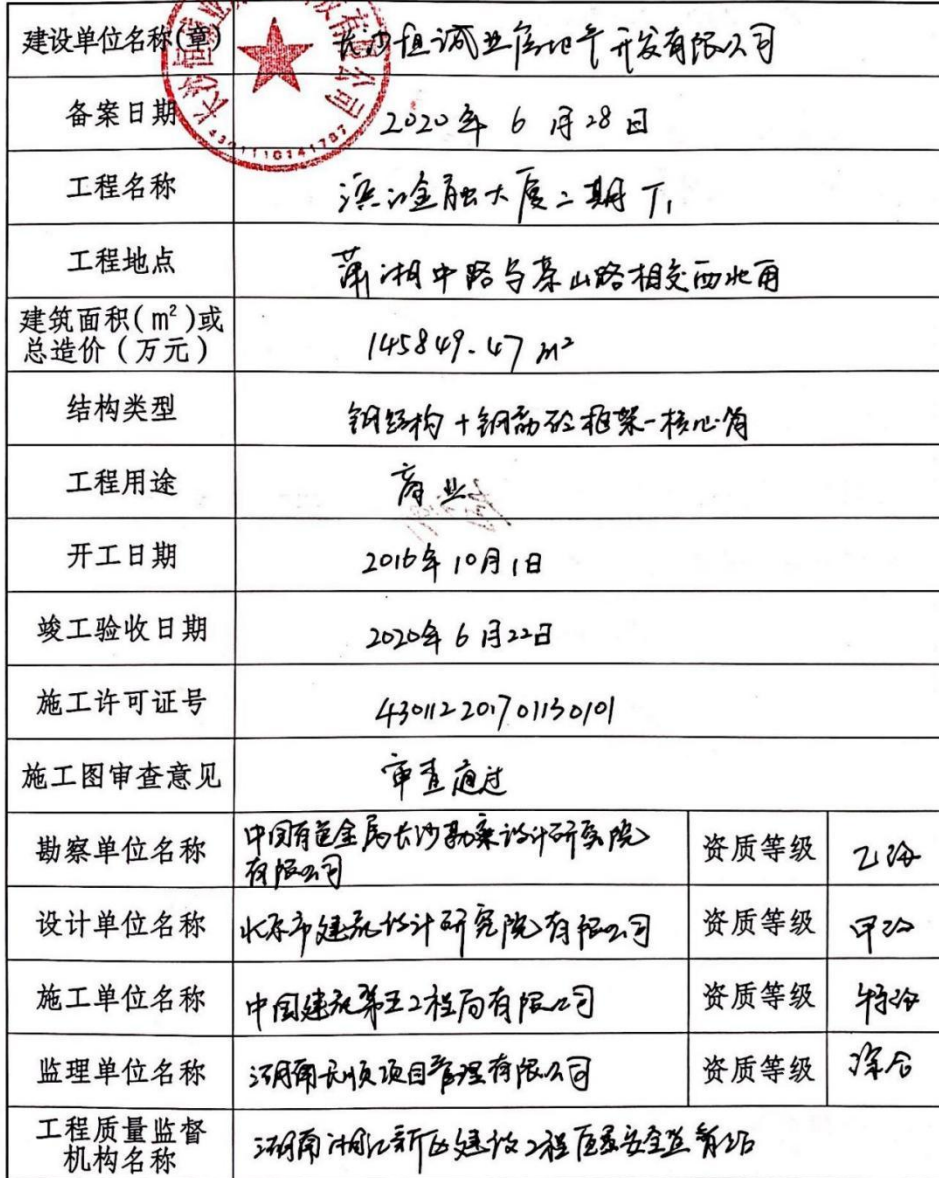 建设单位名称(章) 长沙恒诚业房地产开发有限公司
4301110141787
备案日期 2020年6月28日
工程名称 滨江金融大厦二期T1
工程地点 潇湘中路与茶山路相交西北角
建筑面积(m²)或
总造价(万元) 145849.47 m²
结构类型 钢结构+钢筋砼框架-核心筒
工程用途 商业
开工日期 2016年10月1日
竣工验收日期 2020年6月22日
施工许可证号 430112201701130101
施工图审查意见 审查通过
勘察单位名称 中国有色金属长沙勘察设计研究院
有限公司 资质等级 乙级
设计单位名称 北京市建筑设计研究院有限公司 资质等级 甲级
施工单位名称 中国建筑第五工程局有限公司 资质等级 特级
监理单位名称 湖南长顺项目管理有限公司 资质等级 综合
工程质量监督
机构名称 湖南湘江新区建设工程质量安全监督站